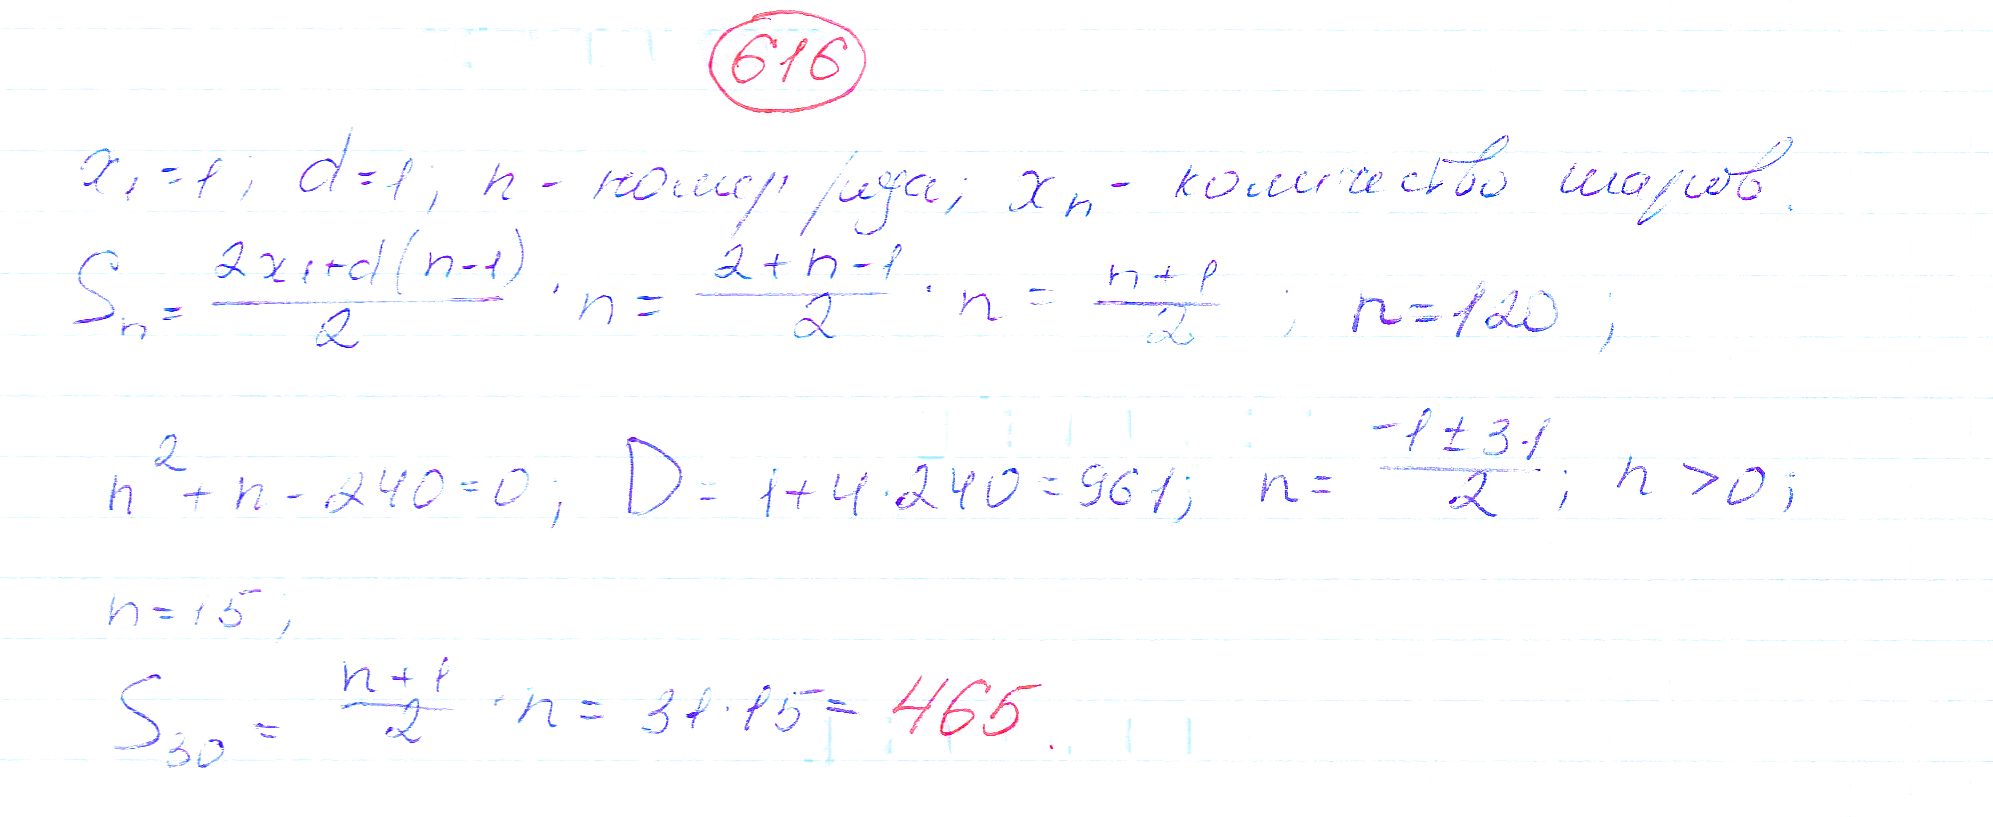 616
x₁=1; d=1; n - номер ряда; xₙ - количество шаров.
Sₙ = (2x₁+d(n-1))/2 · n = (2+n-1)/2 · n = (n+1)/2 ; n=120;
n²+n-240=0; D=1+4·240=961; n=(-1±31)/2; n>0;
n=15;
S₃₀ = (n+1)/2 · n = 31·15 = 465.